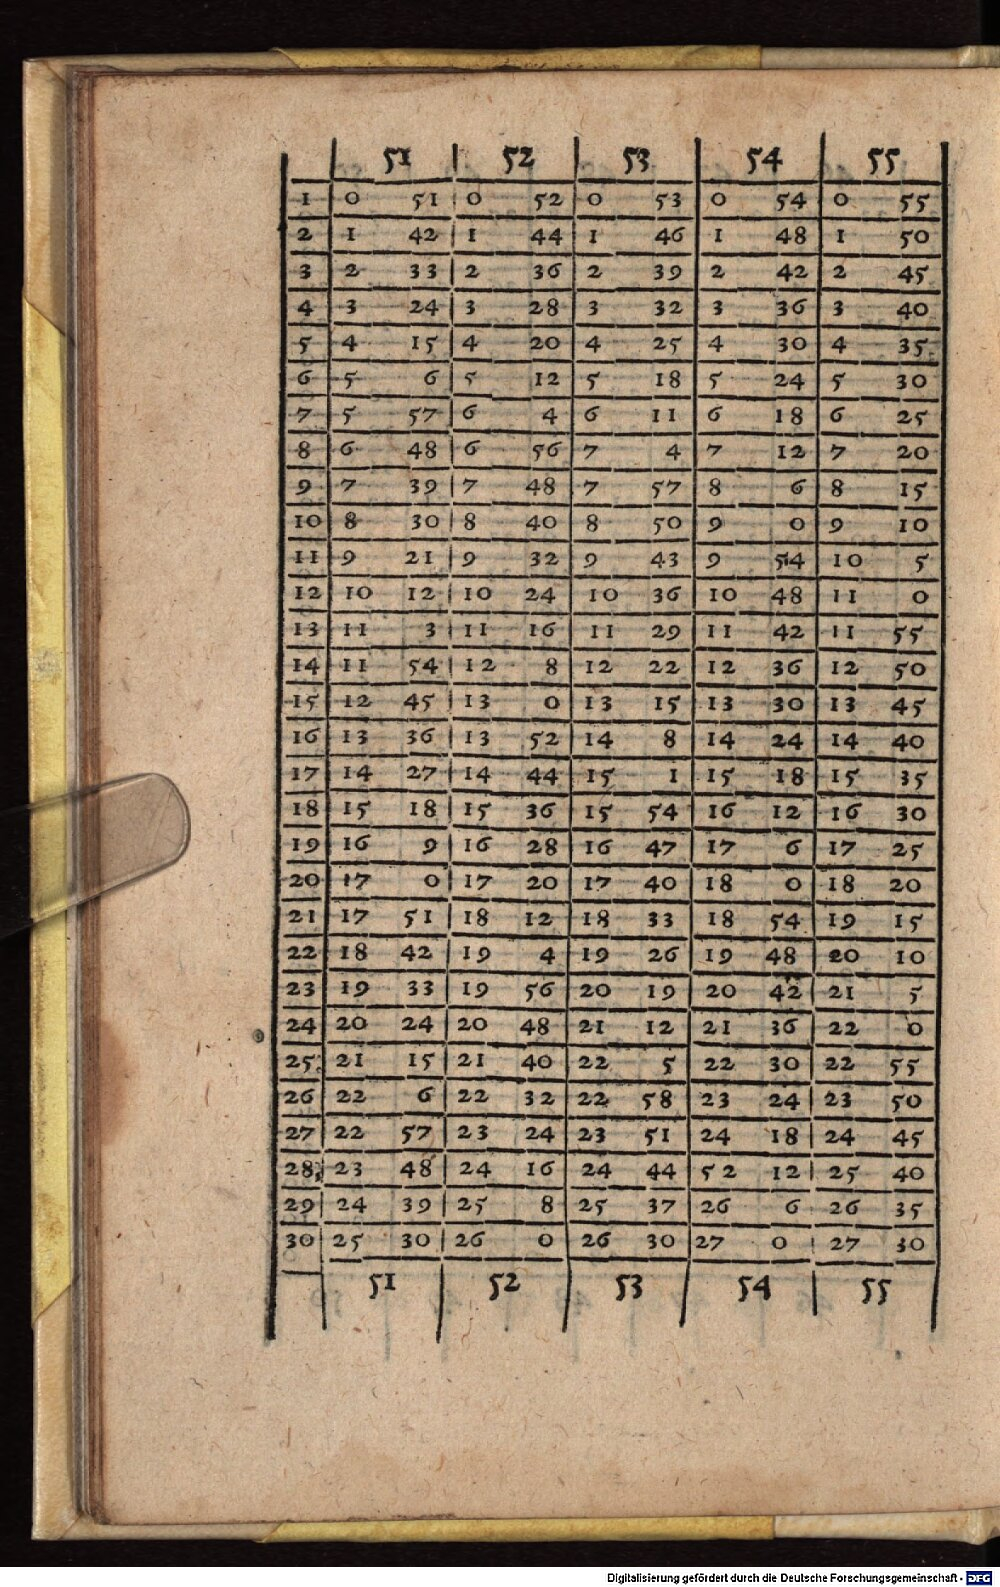 51 52 53 54 55
1 0 51 0 52 0 53 0 54 0 55
2 1 42 1 44 1 46 1 48 1 50
3 2 33 2 36 2 39 2 42 2 45
4 3 24 3 28 3 32 3 36 3 40
5 4 15 4 20 4 25 4 30 4 35
6 5 6 5 12 5 18 5 24 5 30
7 5 57 6 4 6 11 6 18 6 25
8 6 48 6 56 7 4 7 12 7 20
9 7 39 7 48 7 57 8 6 8 15
10 8 30 8 40 8 50 9 0 9 10
11 9 21 9 32 9 43 9 54 10 5
12 10 12 10 24 10 36 10 48 11 0
13 11 3 11 16 11 29 11 42 11 55
14 11 54 12 8 12 22 12 36 12 50
15 12 45 13 0 13 15 13 30 13 45
16 13 36 13 52 14 8 14 24 14 40
17 14 27 14 44 15 1 15 18 15 35
18 15 18 15 36 15 54 16 12 16 30
19 16 9 16 28 16 47 17 6 17 25
20 17 0 17 20 17 40 18 0 18 20
21 17 51 18 12 18 33 18 54 19 15
22 18 42 19 4 19 26 19 48 20 10
23 19 33 19 56 20 19 20 42 21 5
24 20 24 20 48 21 12 21 36 22 0
25 21 15 21 40 22 5 22 30 22 55
26 22 6 22 32 22 58 23 24 23 50
27 22 57 23 24 23 51 24 18 24 45
28 23 48 24 16 24 44 52 12 25 40
29 24 39 25 8 25 37 26 6 26 35
30 25 30 26 0 26 30 27 0 27 30
51 52 53 54 55
Digitalisierung gefördert durch die Deutsche Forschungsgemeinschaft - DFG